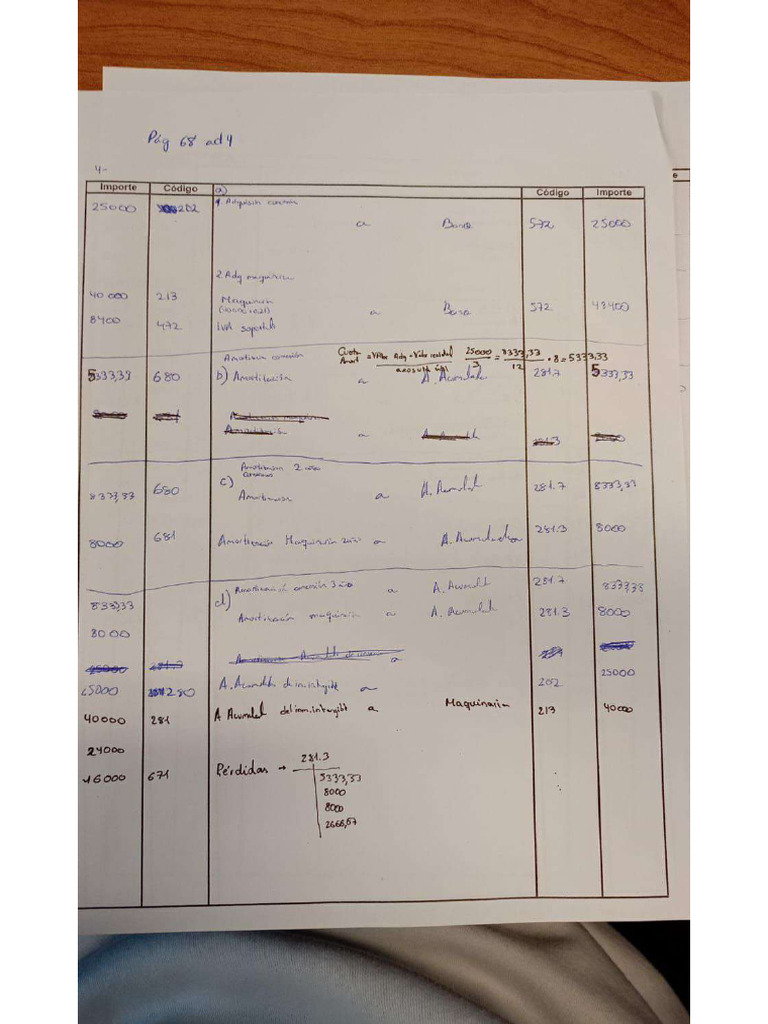 Pág 68 ad 4
4-
Importe Código a) Código Importe
25000 202 1 Adquisición concesión
a Banco 572 25000
2 Adq maquinaria
40 000 213 Maquinaria
(40000 × 0,21) a Banco 572 48400
8400 472 IVA soportado
Amortización concesión Cuota Amort = Valor Adq - Valor residual / años vida útil 25000/3 = 8333,33/12 · 8 = 5333,33
5333,33 680 b) Amortización a A. Acumulada 281.7 5333,33
Amortización 2 año
concesión
8333,33 680 c) Amortización a A. Acumulada 281.7 8333,33
8000 681 Amortización Maquinaria 2 año a A. Acumulada 281.3 8000
8333,33 d) Amortización concesión 3 año a A. Acumul 281.7 8333,33
8000 Amortización maquinaria a A. Acumul 281.3 8000
25000 280 A. Acumulada de inm. intangible a 202 25000
40000 281 A Acumulad del inm. intangibl a Maquinaria 213 40000
24000
16000 671 Pérdidas → 281.3
5333,33
8000
8000
2666,67